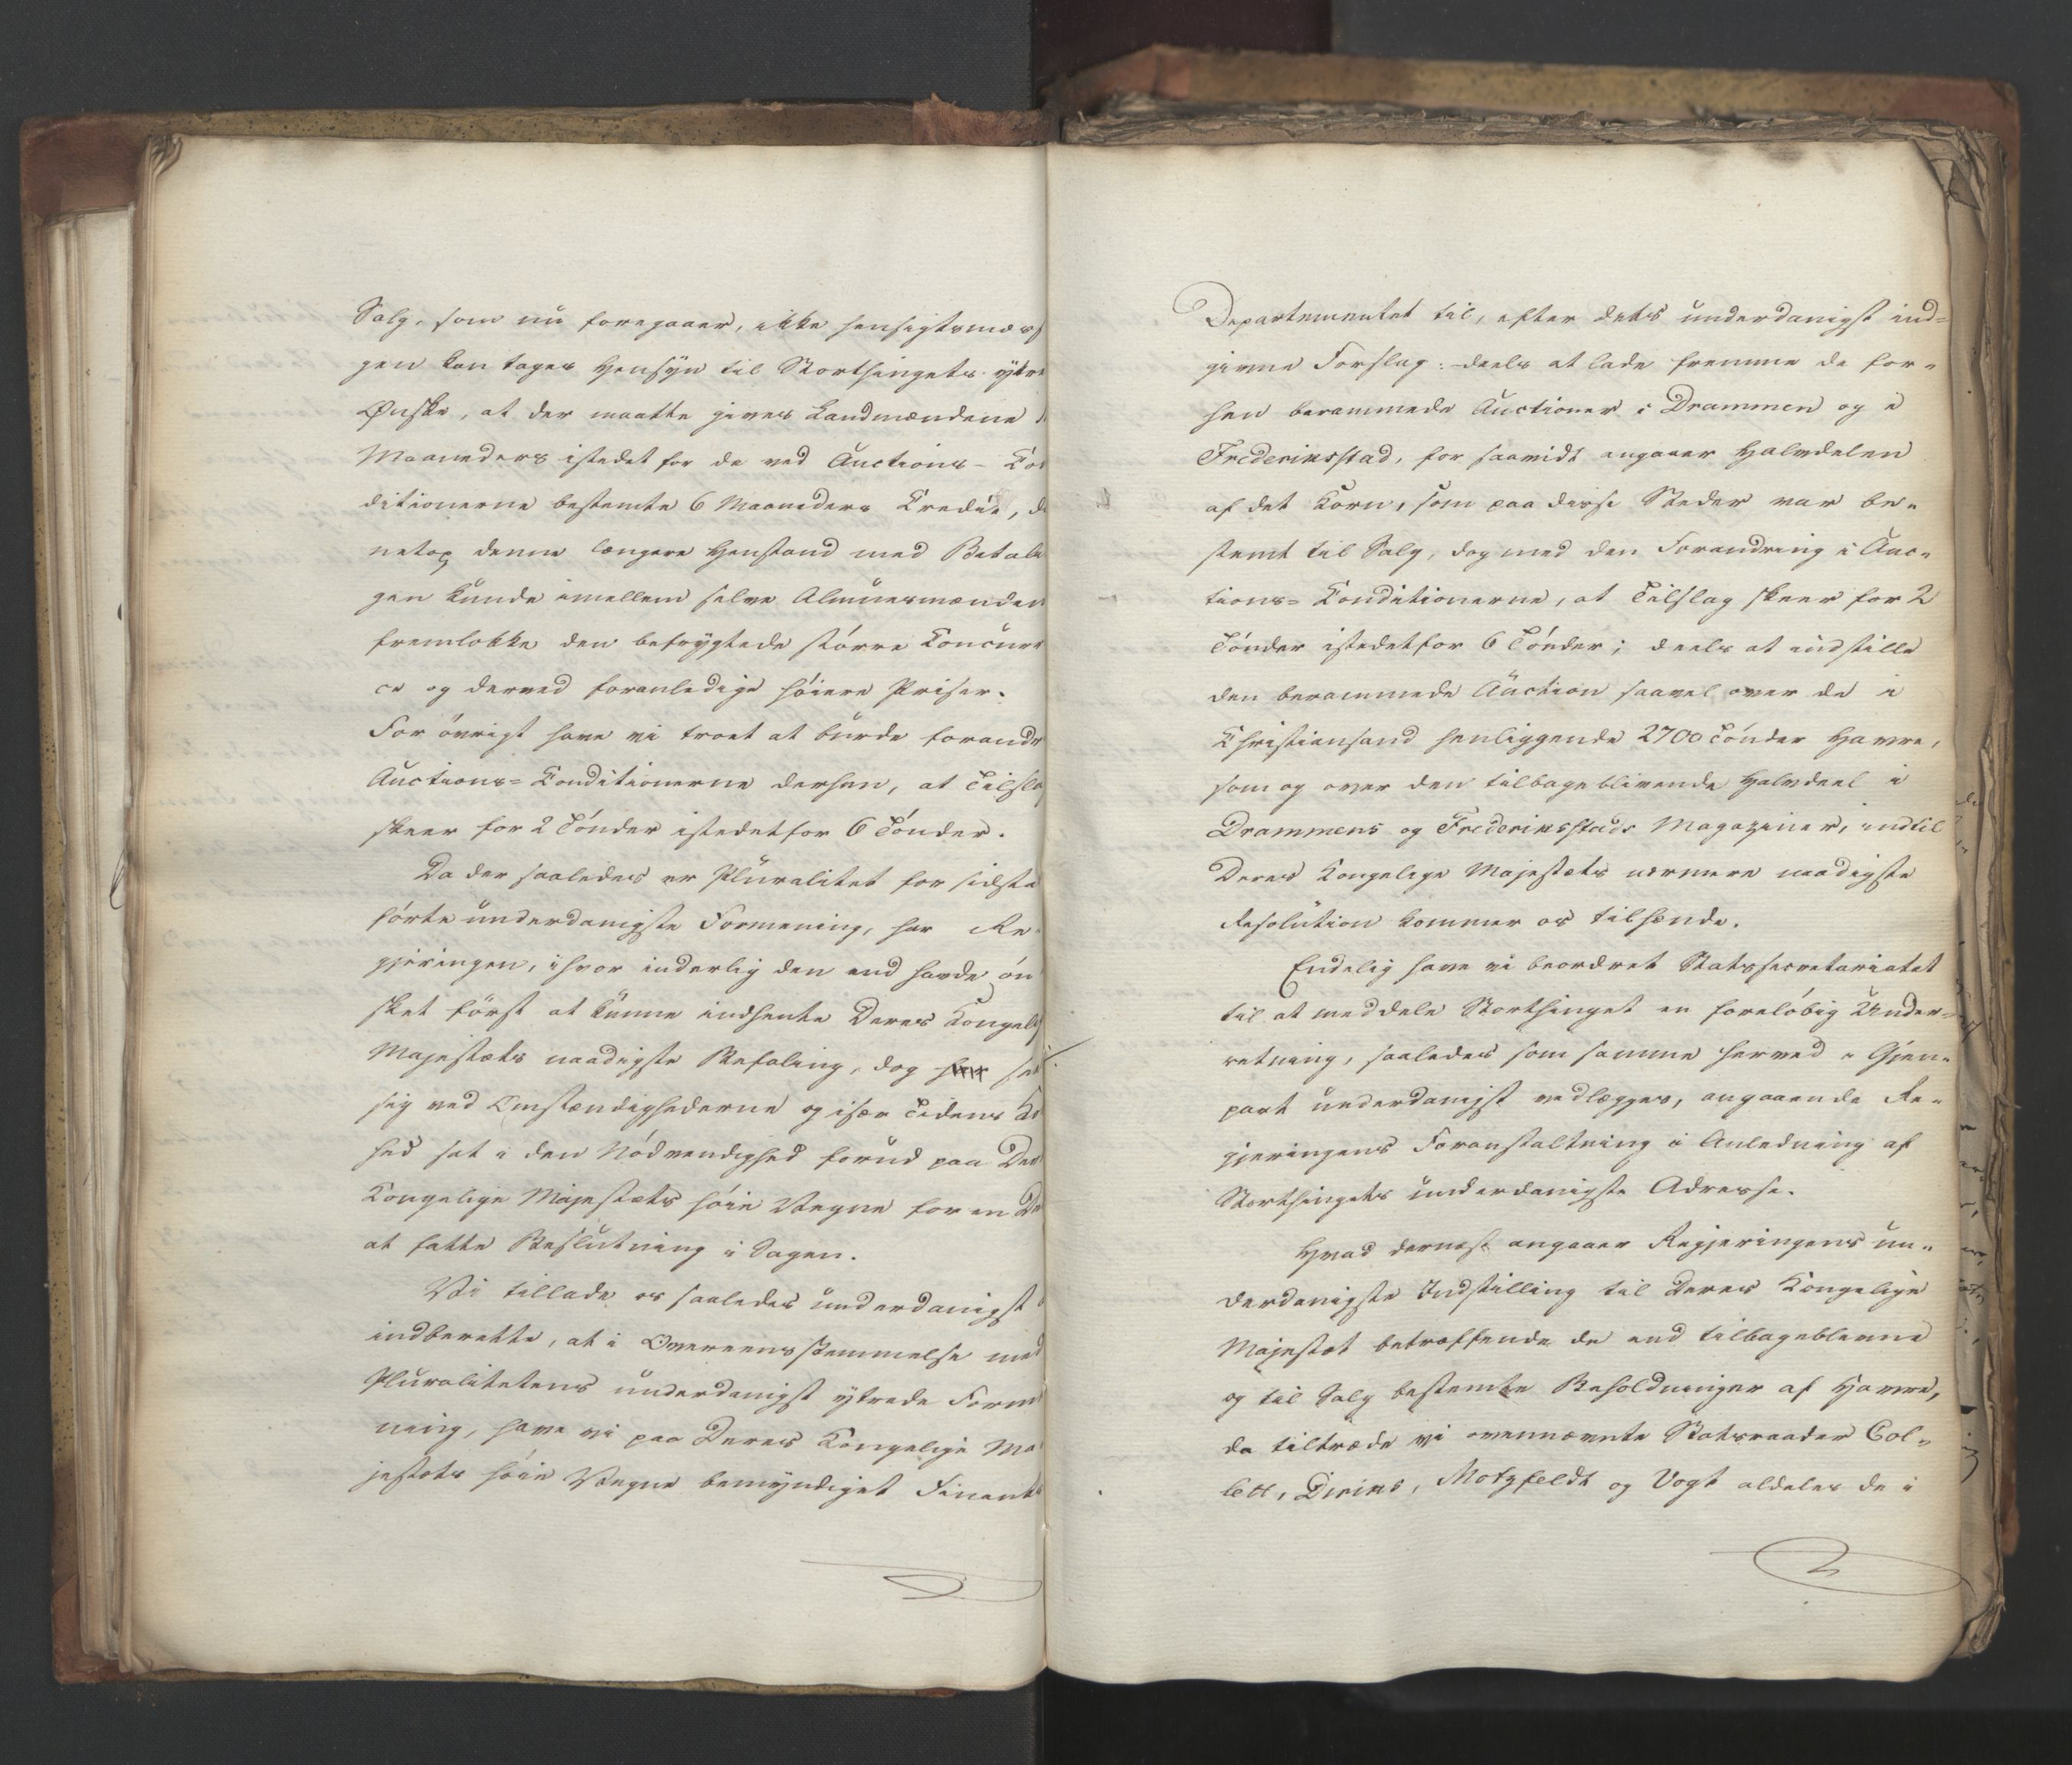 Salg, som nu foregaaer, ikke hensigtsmæss
gen kan tages Hensyn til Storthingets ytre
Ønske, at der maatte gives Landmændene
Maaneders istedet for de ved Auctions-Con
ditionerne bestemte 6 Maaneders Credit, d
netop denne længere Henstand med Betale
gen kunde imellem selve Almuesmænden
fremlokke den befrygtede större Concurr
ce og derved foranledige höiere Priser.
For övrigt have vi troet at burde forandr
Auctions-Conditionerne derhen, at Tilsla
skeer for 2 Tönder istedetfor 6 Tönder.
Da der saaledes er Pluralitet for sidst an
förte underdanigste Formening, har Re-
gjeringen, ihvor inderlig den end havde ön
sket först at kunne indhente Deres Kongel
Majestæts naadigste Befaling, dog seet
sig ved Omstændighederne og især Tidens Ko
hed sat i den Nödvendighed forud paa Der
Kongelige Majestæts höie Vegne for en De
at fatte Beslutning i Sagen.
Vi tillade os saaledes underdanigst
indberette, at i Overeensstemmelse med
Pluralitetens underdanigst yttrede Forme
ning, have vi paa Deres Kongelige Ma
jestæts höie Vegne bemyndiget Finants
Departementet til, efter dets underdanigst ind=
givne Forslag: deels at lade fremme de for-
hen berammede Auctioner i Drammen og i
Frederiksstad, for saavidt angaaer Halvdelen
af det Korn, som paa disse Steder var be-
stemt til Salg, dog med den Forandring i Auc-
tions=Conditionerne, at Tilslag skeer for 2
Tönder istedetfor 6 Tönder; deels at indstille
den berammede Auction saavel over de i
Christiansand henliggende 2700 Tönder Havre,
som og over den tilbageblivende Halvdeel i
Drammens og Frederiksstads Magaziner, indtil
Deres Kongelige Majestæts nærmere naadigste
Resolution kommer os tilhænde.
Endelig have vi beordret Statssecretariatet
til at meddele Storthinget en foreløbig Under=
retning, saaledes som samme herved i Gjen-
part underdanigst vedlægges, angaaende Re-
gjeringens Foranstaltning i Anledning af
Storthingets underdanigste Adresse.
Hvad dernæst angaaer Regjeringens un-
derdanigste Indstilling til Deres Kongelige
Majestæt betræffende de end tilbageblevne
og til Salg bestemte Beholdninger af Havre,
da tiltræde vi ovennævnte Statsraader Col-
lett, Diriks, Motzfeldt og Vogt aldeles de i